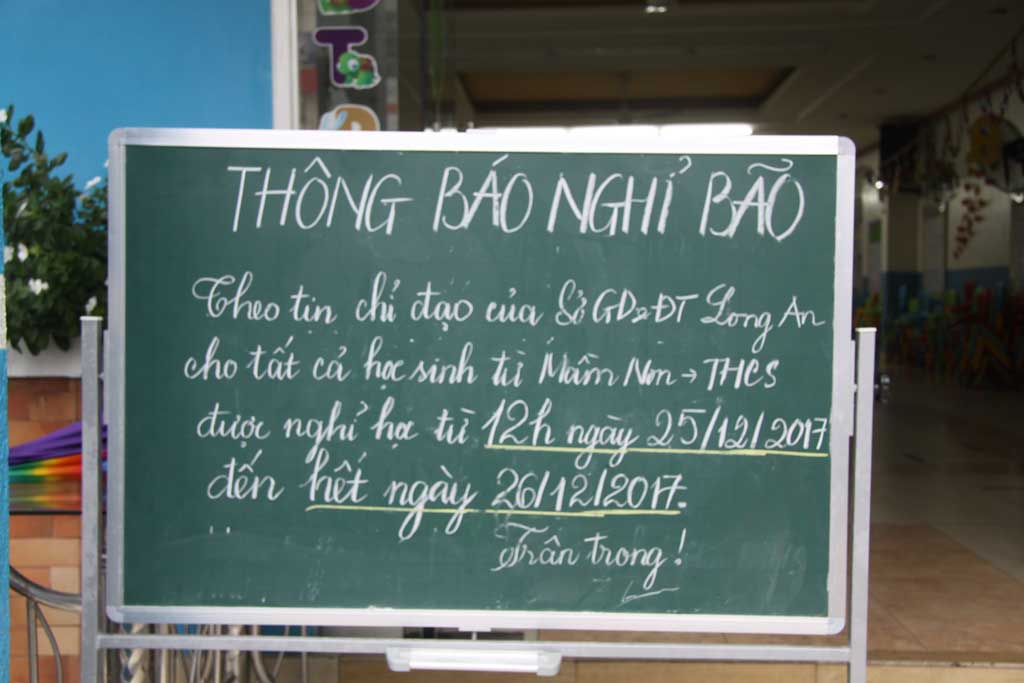 THÔNG BÁO NGHỈ BÃO
Theo tin chỉ đạo của Sở GD&ĐT Long An
cho tất cả học sinh từ Mầm Non → THCS
được nghỉ học từ 12h ngày 25/12/2017
đến hết ngày 26/12/2017.
Trân trọng!